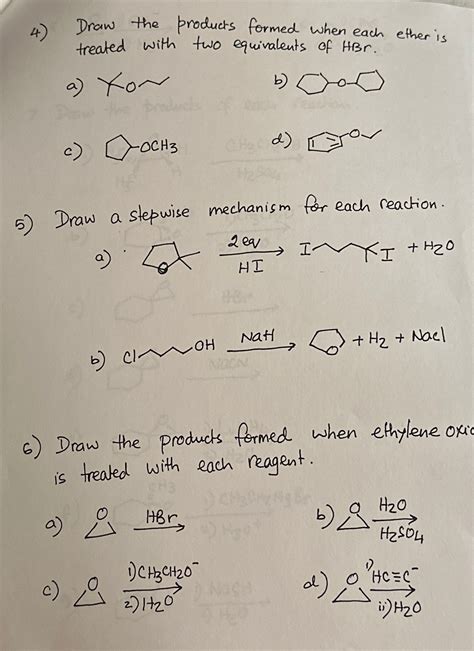 4) Draw the products formed when each ether is
treated with two equivalents of HBr.
a) O
b) O
c) OCH3
d) O
5) Draw a stepwise mechanism for each reaction.
a) O 2 eq HI I I + H2O
b) Cl OH NaH O + H2 + Nacl
6) Draw the products formed when ethylene oxid
is treated with each reagent.
a) O HBr
b) O H2O H2SO4
c) O 1) CH3CH2O⁻ 2) H2O
d) O i) HC≡C⁻ ii) H2O